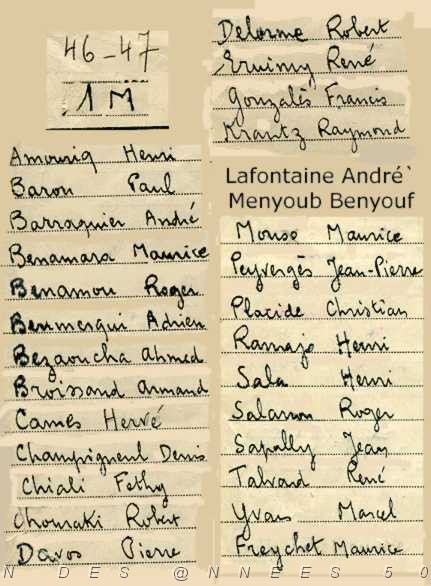 46-47
1M
Amouriq Henri
Baron Paul
Barraquier André
Benamara Maurice
Benamou Roger
Benmergui Adrien
Bezaoucha Ahmed
Broissand Armand
Cames Hervé
Champigneul Denis
Chiali Fethy
Chouraki Robert
Davos Pierre
Delorme Robert
René
Gonzalès Francis
Krantz Raymond
Lafontaine André`
Menyoub Benyouf
Maurice
Peyvergès Jean-Pierre
Placide Christian
Ramajo Henri
Sala Henri
Salamon Roger
Jean
Talvard René
Yvars Marcel
Freychet Maurice
N DES @NNEES 50